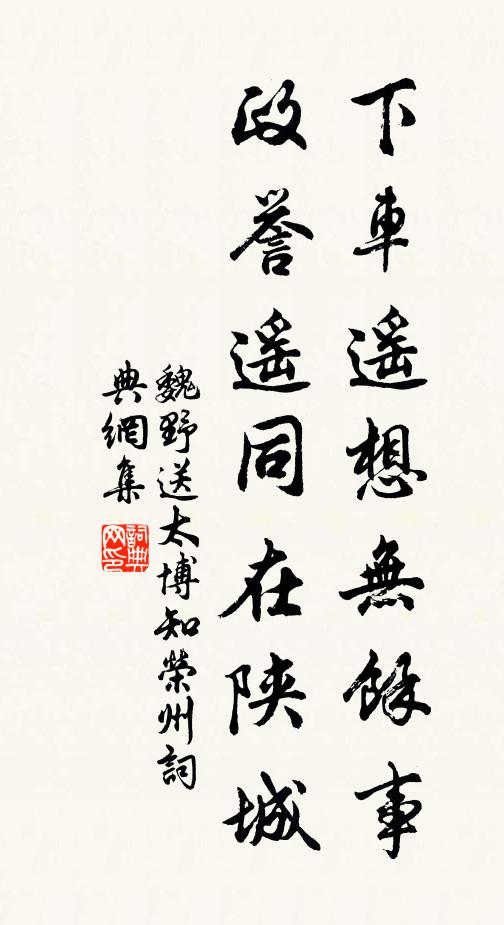 下車遥想無餘事
政譽遥同在陝城
魏野送太博知榮州詞
典網集
詞典
网印